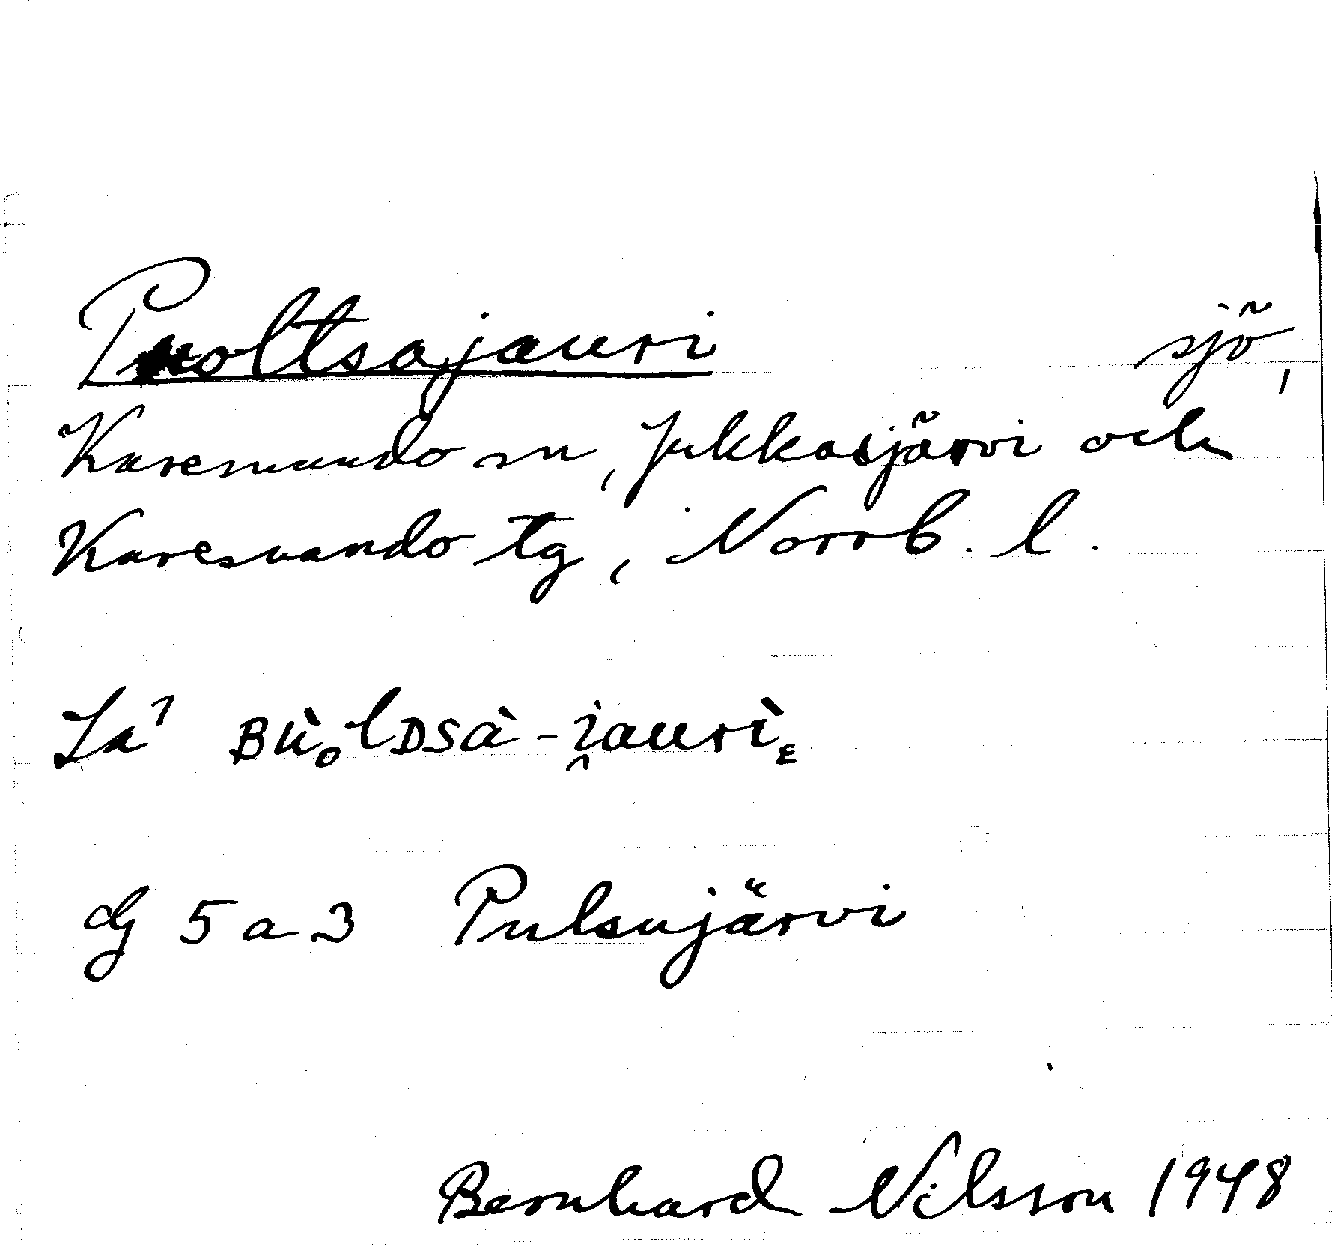 Puoltsajauri sjö,
Karesuando sn, Jukkasjärvi och
Karesuando tg, Norrb. l.
La⁷ ʙu̇ₒlᴅsȧ-i̯auri̇
dg 5 a 3 Pulsujärvi
Bernhard Nilsson 1948